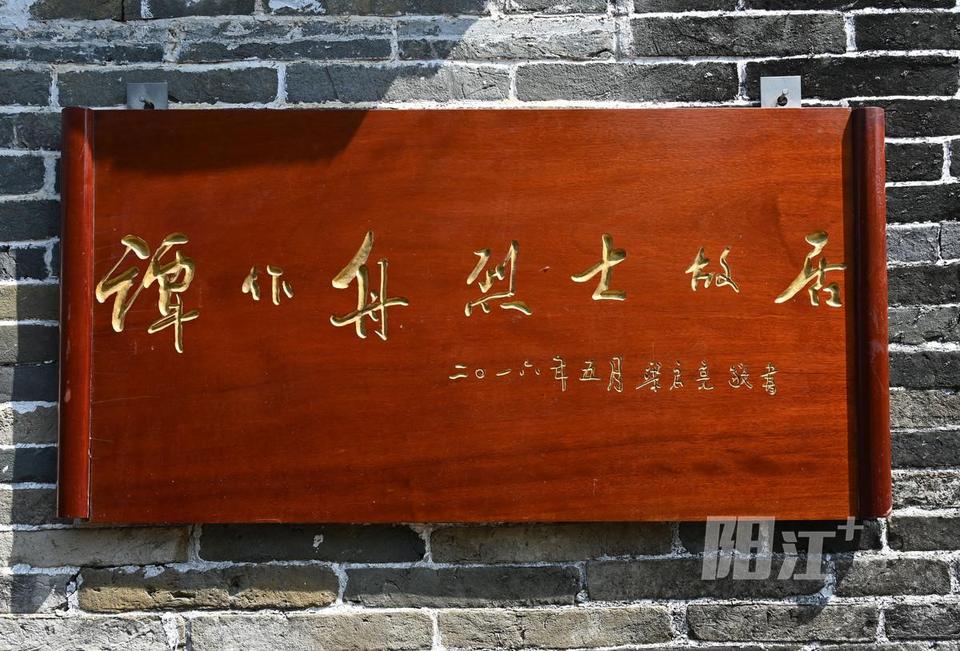 谭作舟烈士故居
二〇一六年五月梁启亮敬书
阳江+